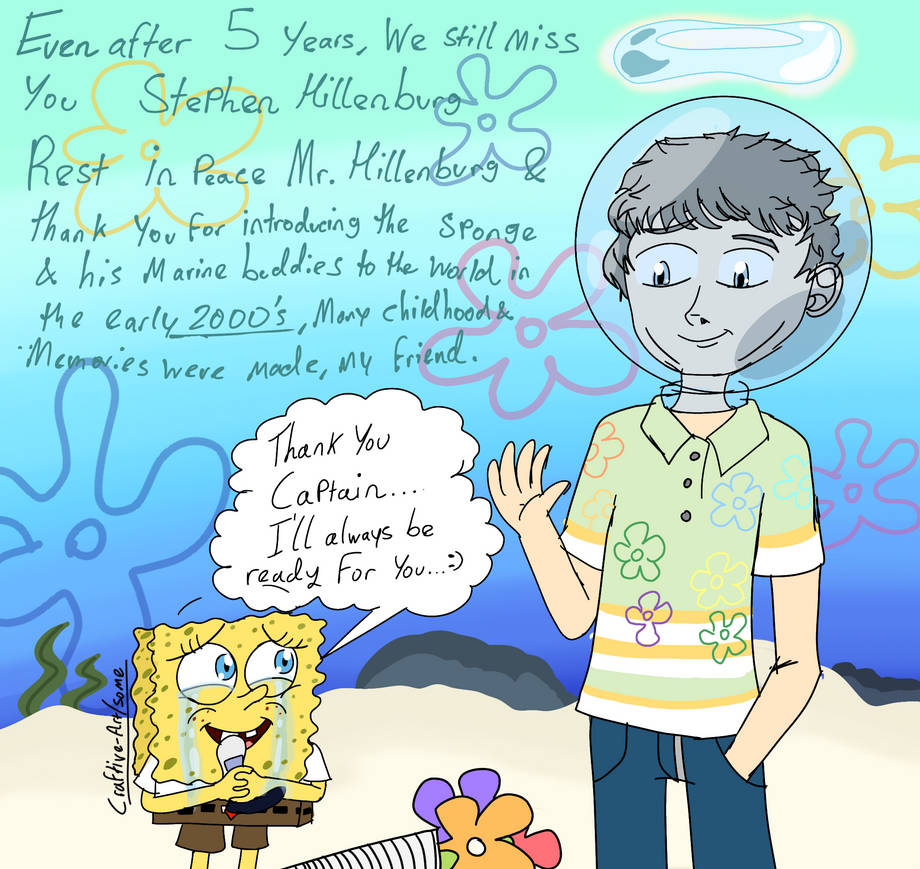 Even after 5 Years, We still Miss
You Stephen Hillenburg
Rest in Peace Mr. Hillenburg &
thank You for introducing the Sponge
& his Marine buddies to the World in
the early 2000's, Many childhood &
Memories were made, my friend.
Thank You
Captain....
I'll always be
ready For You...:)
Craftive-Art/some